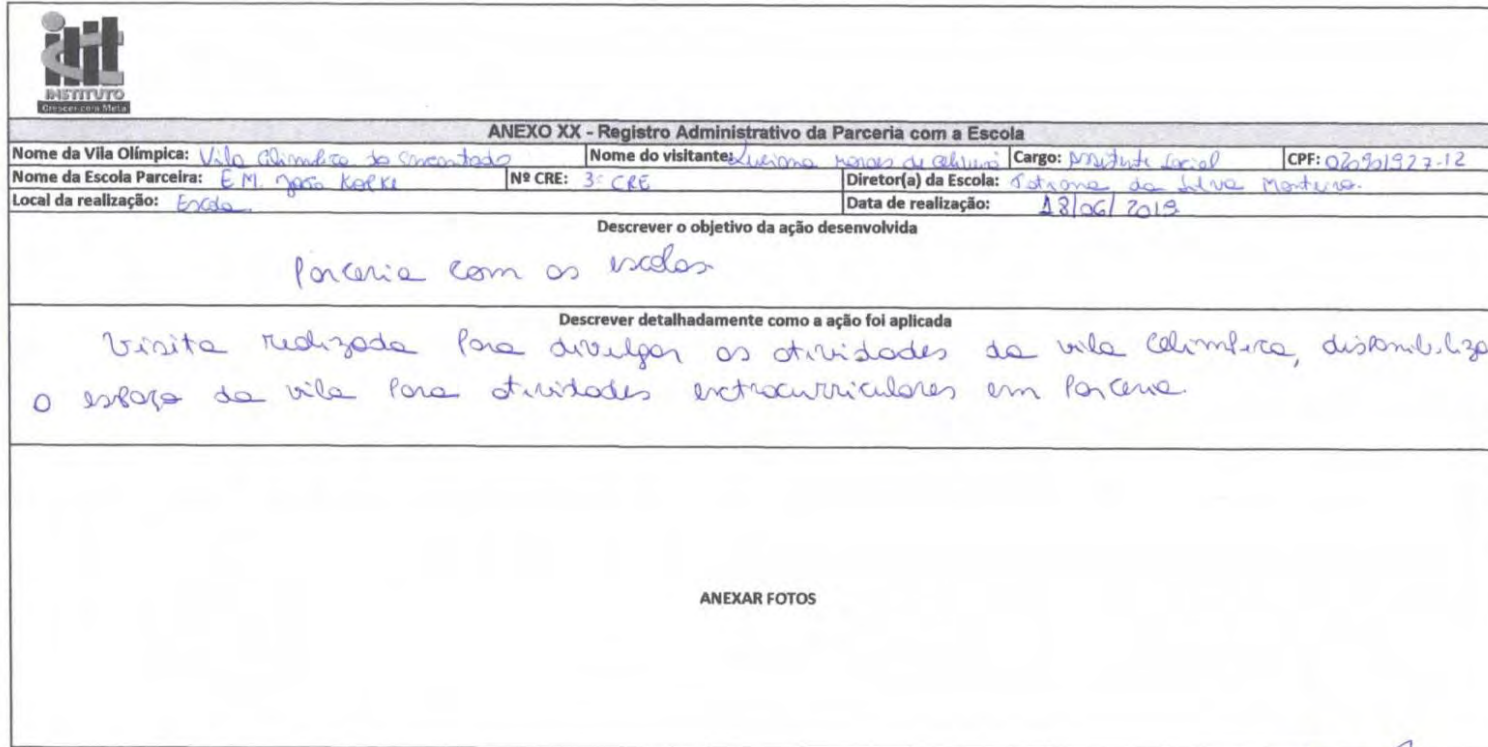 INSTITUTO
Crescer com Meta
ANEXO XX - Registro Administrativo da Parceria com a Escola
Nome da Vila Olímpica: Vila Olímpica do Encantado Nome do visitante: Luciana Cargo: Assistente Social CPF: 020901927-12
Nome da Escola Parceira: E.M. João Kopke Nº CRE: 3ª CRE Diretor(a) da Escola: Tatiana da Silva Monteiro.
Local da realização: Escola Data de realização: 18/06/2019
Descrever o objetivo da ação desenvolvida
Parceria com as escolas
Descrever detalhadamente como a ação foi aplicada
Visita realizada para divulgar as atividades da vila Olímpica, disponibiliza
o espaço da vila para atividades extracurriculares em parceria.
ANEXAR FOTOS